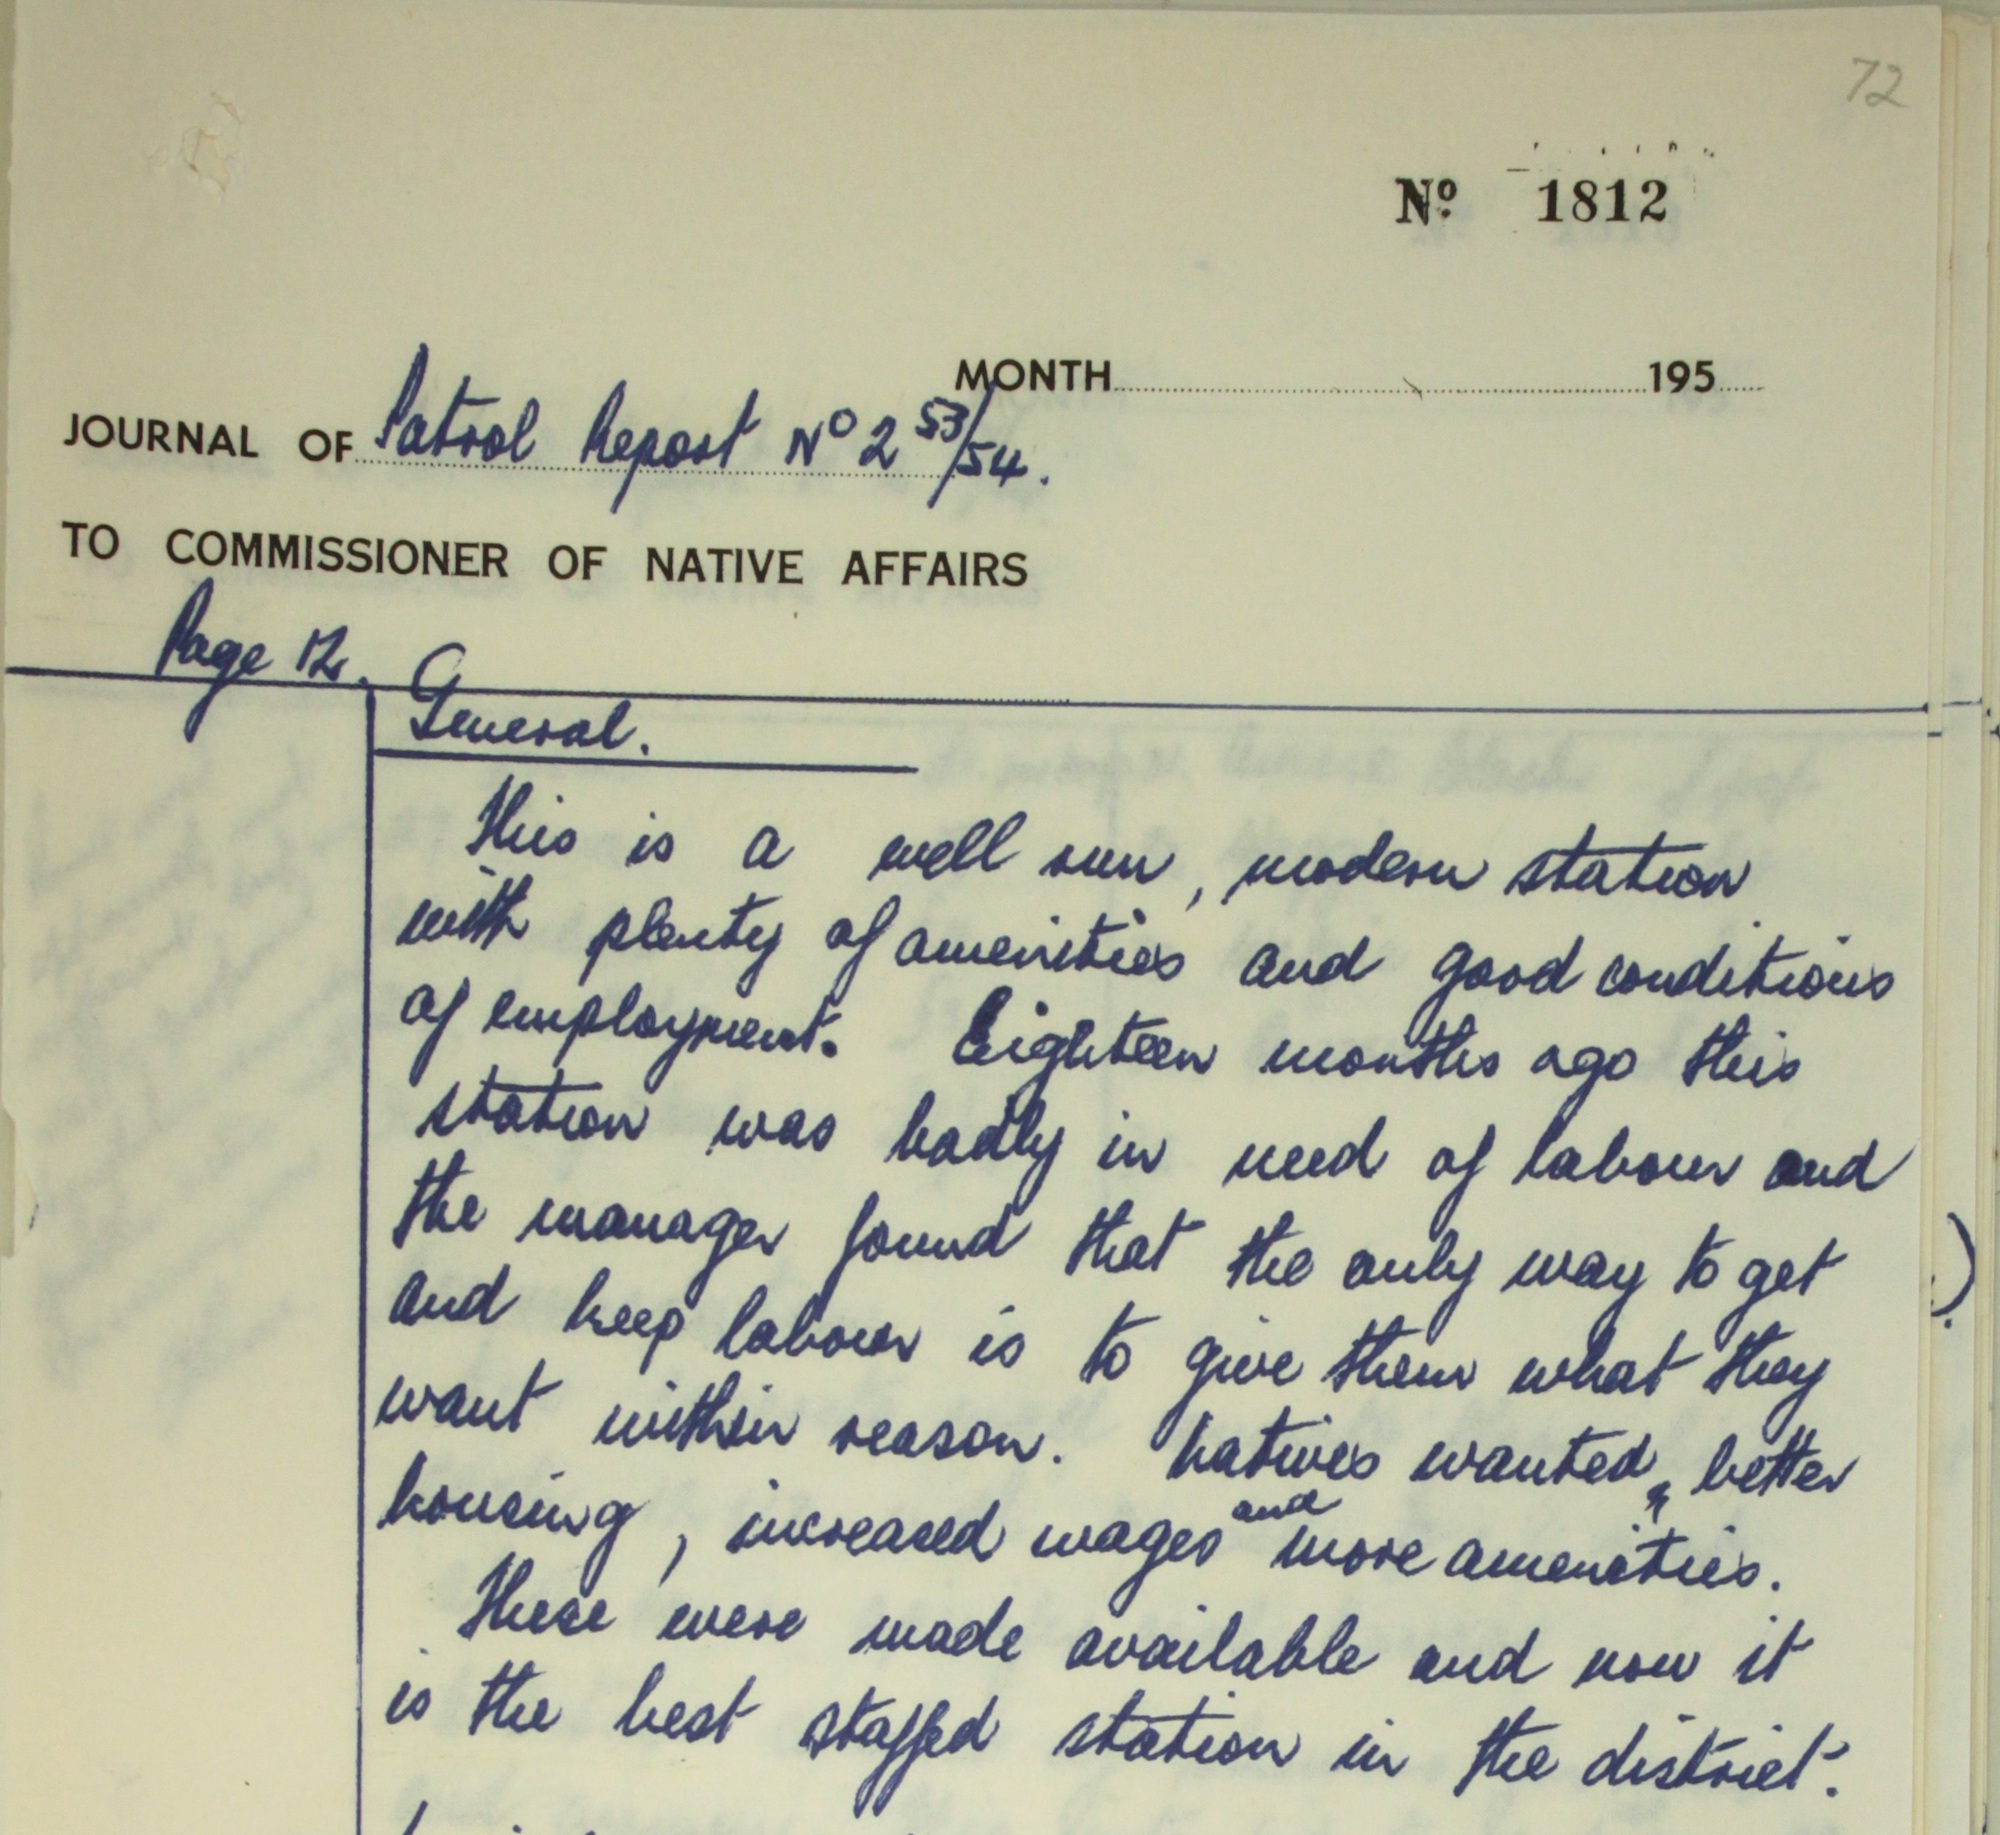 72
Nº 1812
MONTH 195
JOURNAL OF Patrol Report Nº 2 53/54.
TO COMMISSIONER OF NATIVE AFFAIRS
Page 12.
General.
This is a well run, modern station
with plenty of amenities and good conditions
of employment. Eighteen months ago this
station was badly in need of labour and
the manager found that the only way to get
and keep labour is to give them what they
want within reason. Natives wanted, better
housing, increased wages and more amenities.
These were made available and now it
is the best staffed station in the district.